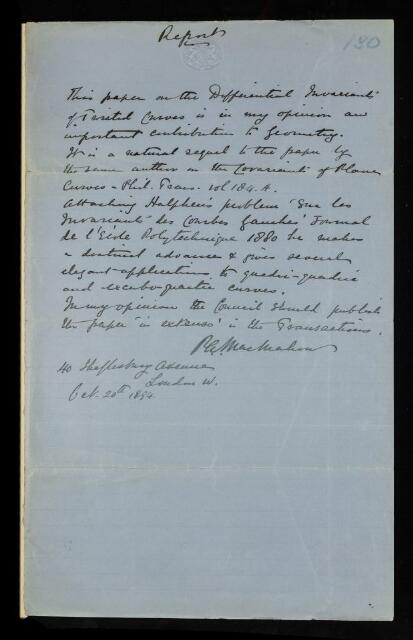 Report
130
This paper on the Differential Invariants
of Twisted Curves is in my opinion an
important contribution to Geometry.
It is a natural sequel to the paper by
the same author on the Covariants of Plane
Curves - Phil. Trans. vol 184. A.
Attacking Halphen's problem 'Sur les
Invariants des Courbes Gauches' Journal
de l'École Polytechnique 1880 he makes
a distinct advance & gives several
elegant applications to quadri-quadric
and excubo-quartic curves.
In my opinion the Council should publish
the paper 'in extenso' in the Transactions.
P.A. MacMahon
40 Shaftesbury Avenue
London W.
Oct. 20th 1894